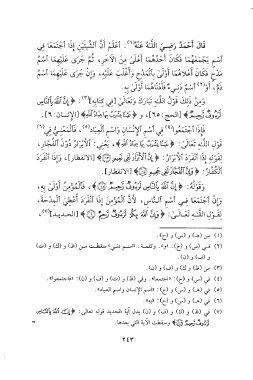 قَالَ أَحْمَدُ رَضِيَ اللَّهُ عَنْهُ(١): اعْلَمْ أَنَّ الشَّيْئَيْنِ إِذَا اجْتَمَعَا فِي
اسْمٍ يَجْمَعُهُمَا فَكَانَ أَحَدُهُمَا أَعْلَىٰ مِنَ الآخَرِ، ثُمَّ جَرَىٰ عَلَيْهِمَا اسْمُ
مَدْحٍ فَكَانَ أَعْلَاهُمَا أَوْلَىٰ بِالْمَدْحِ وَأَغْلَبَ عَلَيْهِ، وَإِنْ جَرَىٰ عَلَيْهِمَا اسْمُ
ذَمٍّ، أَوِ(٢) اسْمٌ دَنِيءٌ فَأَدْنَاهُمَا أَوْلَىٰ بِهِ.
وَمِنْ ذَلِكَ قَوْلُ اللَّهِ تَبَارَكَ وَتَعَالَىٰ [فِي كِتَابِهِ](٣): ﴿إِنَّ ٱللَّهَ بِٱلنَّاسِ
لَرَءُوفٌ رَّحِيمٌ﴾ [الحج: ٦٥]، وَ ﴿عَيْنًا يَشْرَبُ بِهَا عِبَادُ ٱللَّهِ﴾ [الإنسان: ٦].
فَإِذَا اجْتَمَعُوا(٤) فِي اسْمِ الإِنْسَانِ وَاسْمِ الْعِبَادِ(٥)، فَالْمَعْنِيُّ فِي(٦)
قَوْلِ اللَّهِ تَعَالَىٰ: ﴿عَيْنًا يَشْرَبُ بِهَا عِبَادُ ٱللَّهِ﴾، يَعْنِي: الأَبْرَارَ دُونَ الْفُجَّارِ،
لِقَوْلِهِ إِذَا انْفَرَدَ الأَبْرَارُ: ﴿إِنَّ ٱلْأَبْرَارَ لَفِى نَعِيمٍ﴾ [الانفطار]، وَإِذَا انْفَرَدَ
الْكُفَّارُ: ﴿وَإِنَّ ٱلْفُجَّارَ لَفِى جَحِيمٍ﴾ [الانفطار].
وَقَوْلُهُ: ﴿إِنَّ ٱللَّهَ بِٱلنَّاسِ لَرَءُوفٌ رَّحِيمٌ﴾، فَالْمُؤْمِنُ أَوْلَىٰ بِهِ،
وَإِنِ اجْتَمَعَا فِي اسْمِ النَّاسِ، لأَنَّ الْمُؤْمِنَ إِذَا انْفَرَدَ أُعْطِيَ الْمِدْحَةَ،
لِقَوْلِ اللَّهِ تَعَالَىٰ: ﴿وَإِنَّ ٱللَّهَ بِكُمْ لَرَءُوفٌ رَّحِيمٌ﴾ [الحديد](٧)،
(١) من (هـ) و (س) و (ح).
(٢) في (س) و (ح): «و». وكلمة: «اسم دنيء» سقطت من (ظ) و (ك) و (ت)
و (ف) و (ن).
(٣) من (ظ) و (ك) و (ف) و (ن).
(٤) في (س) و (ح): «اجتمعا». وفي (ظ) و (ت) و (ف) و (ن): «فاجتمعوا».
(٥) في (هـ) و (س) و (ح): «اسم الإنسان واسم العباد».
(٦) في (هـ) و (س) و (ح):
(٧) في (ظ) و (ك) و (ف) و (ن) بدل آية الحديد قوله تعالى: ﴿إِنَّ ٱللَّهَ بِٱلنَّاسِ
لَرَءُوفٌ رَّحِيمٌ﴾ وسقطت الآية التي بعدها.
٢٤٣